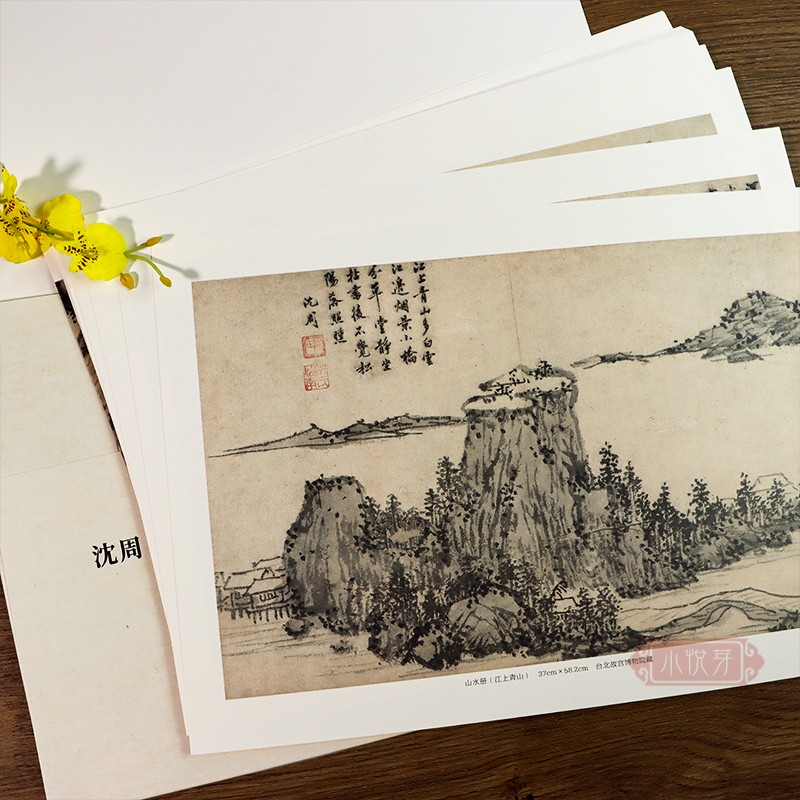 江上青山多白雲
江邊烟景小橋
分草堂靜坐
書後不覺松
落照
沈周
沈周
山水册（江上青山） 37cm×58.2cm 台北故宫博物院藏
小悦芽